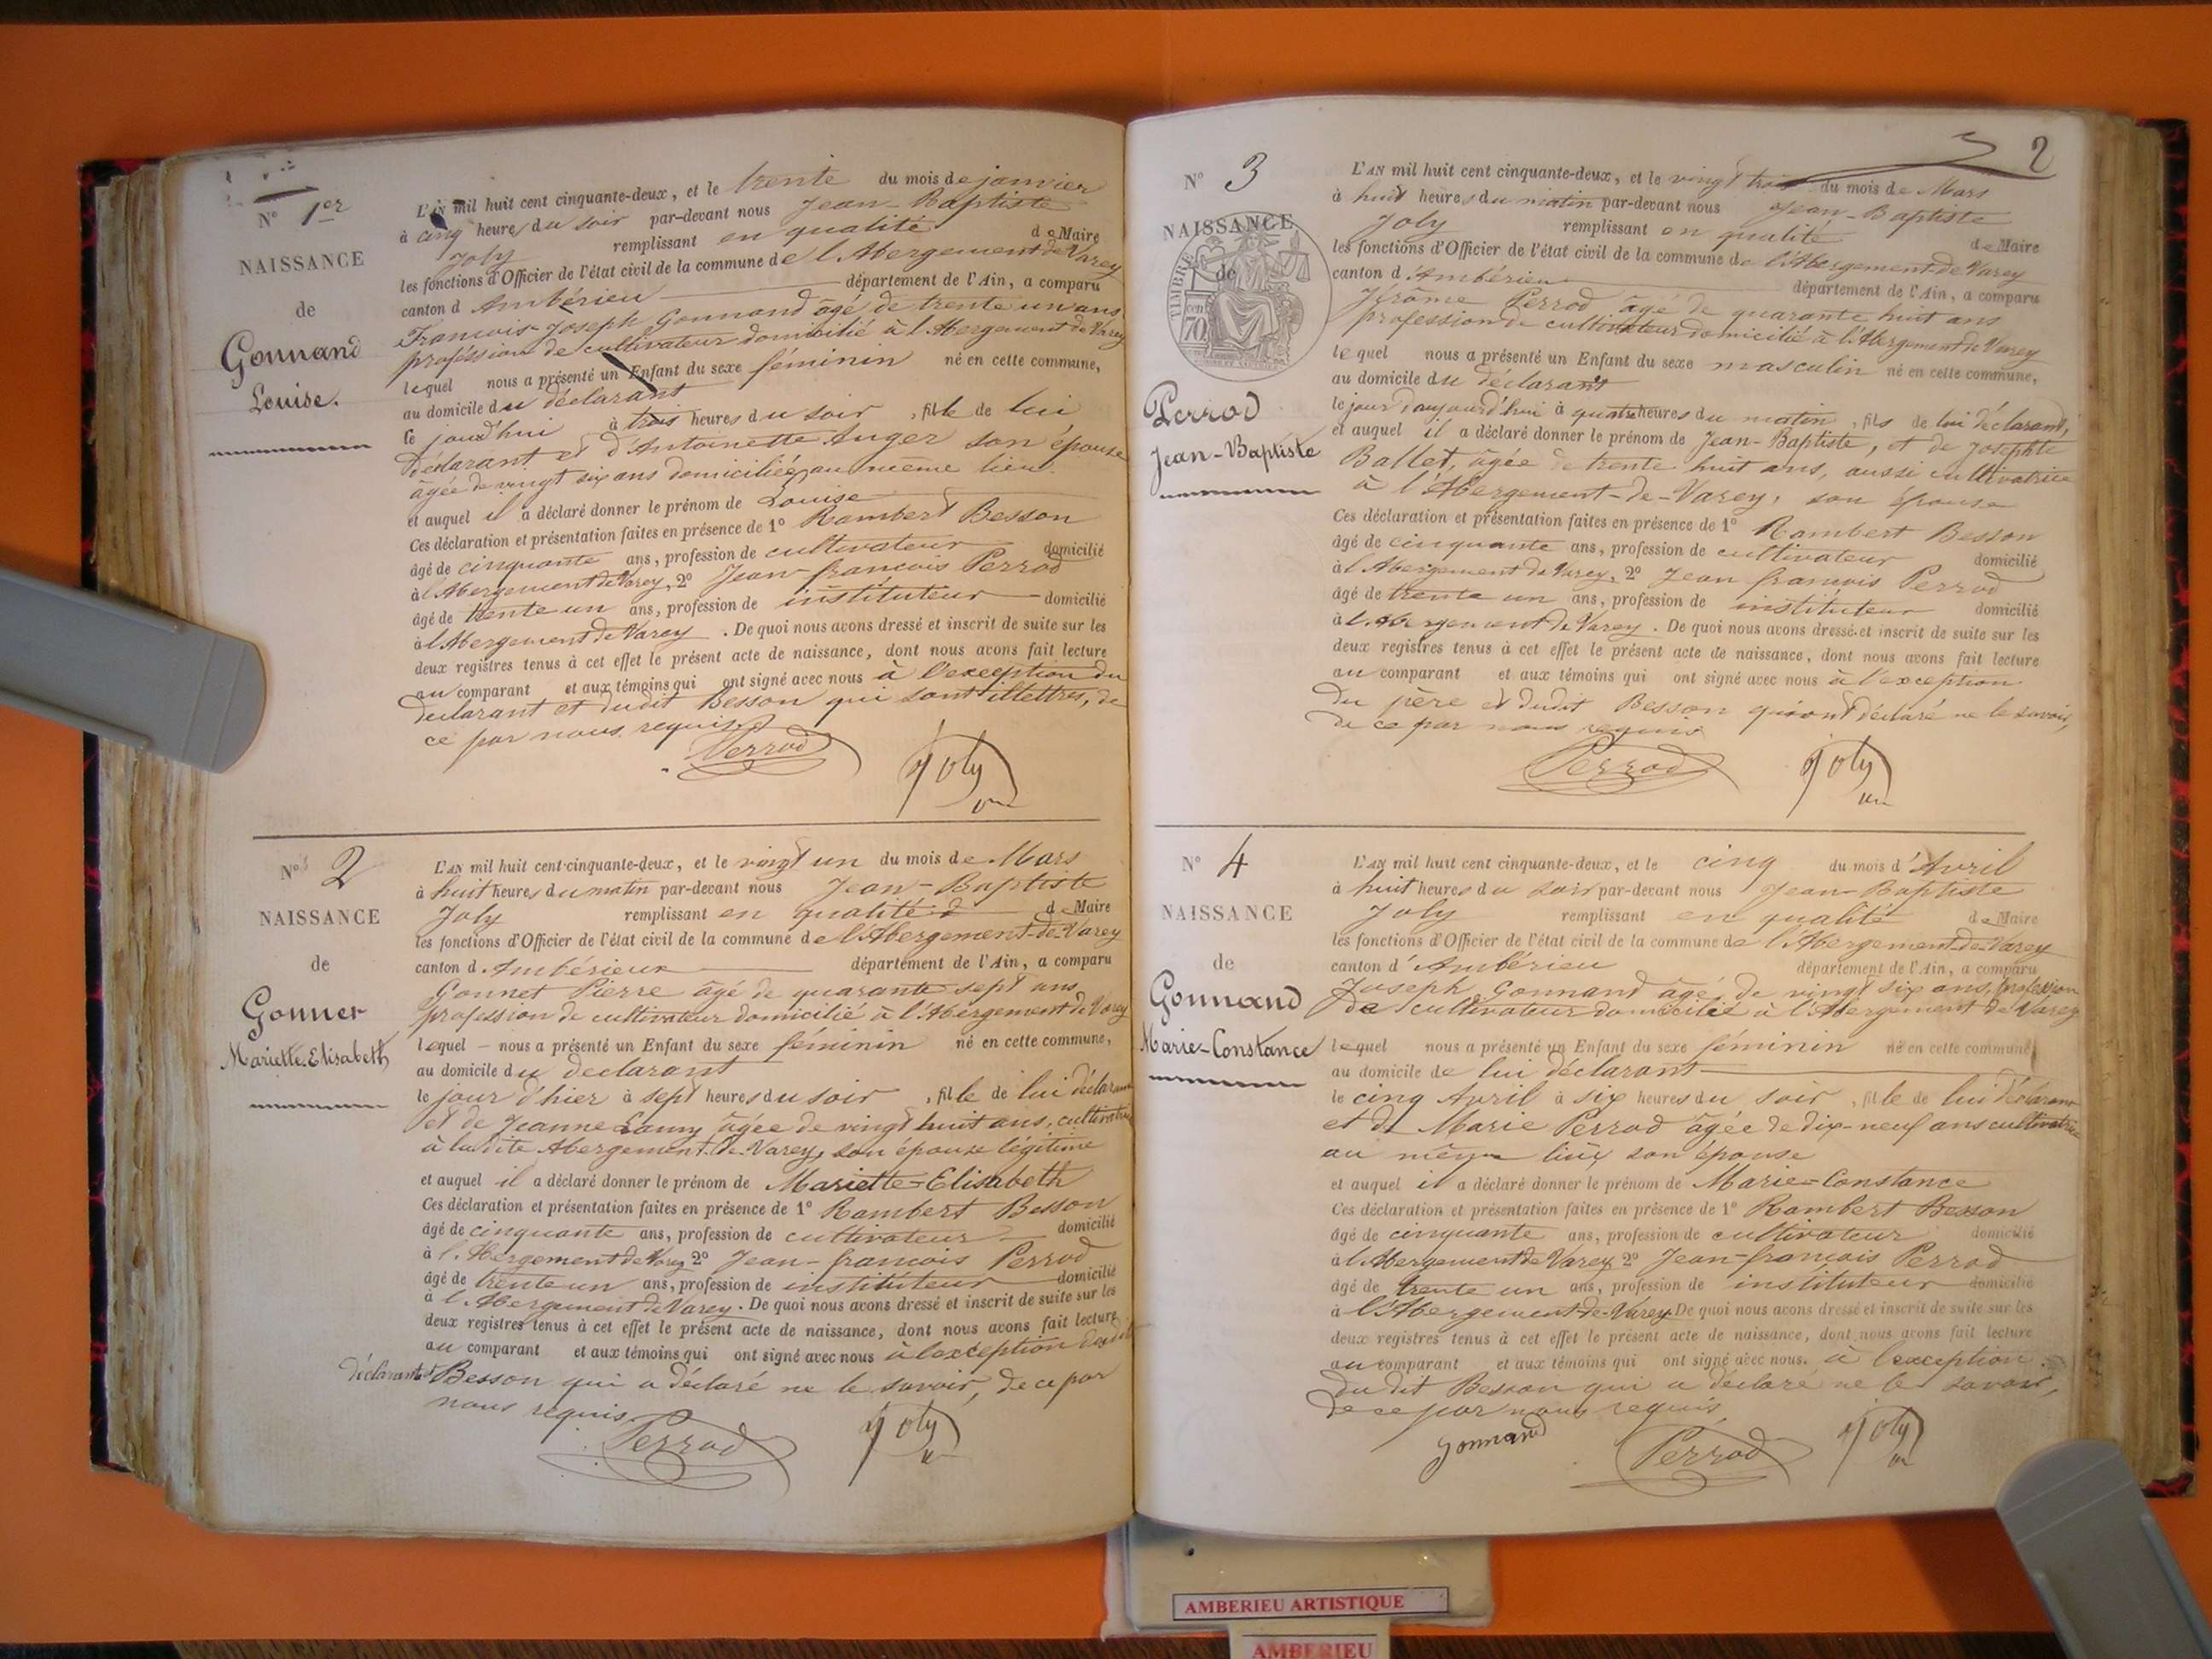 N° 1er
NAISSANCE
de
Gonnand
Louise.
L'AN mil huit cent cinquante-deux, et le trente du mois de janvier
à cinq heures du soir par-devant nous Jean-Baptiste
Joly remplissant en qualité de Maire
les fonctions d'Officier de l'état civil de la commune de l'Abergement de Varey
canton d Ambérieu département de l'Ain, a comparu
François-Joseph Gonnand âgé de trente un ans
profession de cultivateur domicilié à l'Abergement de Varey
lequel nous a présenté un Enfant du sexe féminin né en cette commune,
au domicile du déclarant
le jourd'hui à trois heures du soir, fille de lui
déclarant et d'Antoinette Auger son épouse
âgée de vingt six ans domiciliée au même lieu.
et auquel il a déclaré donner le prénom de Louise
Ces déclaration et présentation faites en présence de 1° Rambert Besson
âgé de cinquante ans, profession de cultivateur domicilié
à l'Abergement de Varey, 2° Jean-françois Perrod
âgé de trente un ans, profession de instituteur domicilié
à l'Abergement de Varey. De quoi nous avons dressé et inscrit de suite sur les
deux registres tenus à cet effet le présent acte de naissance, dont nous avons fait lecture
au comparant et aux témoins qui ont signé avec nous à l'exception du
déclarant et dudit Besson qui sont illettrés, de
ce par nous requis.
Perrod Joly
N° 2
NAISSANCE
de
Gonner
Mariette-Elisabeth
L'AN mil huit cent cinquante-deux, et le vingt un du mois de Mars
à huit heures du matin par-devant nous Jean-Baptiste
Joly remplissant en qualité de Maire
les fonctions d'Officier de l'état civil de la commune de l'Abergement-de-Varey
canton d Ambérieux département de l'Ain, a comparu
Gonnet Pierre âgé de quarante sept ans
profession de cultivateur domicilié à l'Abergement de Varey
lequel nous a présenté un Enfant du sexe féminin né en cette commune,
au domicile du déclarant
le jour d'hier à sept heures du soir, fille de lui déclarant
et de Jeanne Lamy âgée de vingt huit ans, cultivatrice
à la dite Abergement-de-Varey, son épouse légitime
et auquel il a déclaré donner le prénom de Mariette-Elisabeth
Ces déclaration et présentation faites en présence de 1° Rambert Besson
âgé de cinquante ans, profession de cultivateur domicilié
à l'Abergement de Varey 2° Jean-françois Perrod
âgé de trente un ans, profession de instituteur domicilié
à l'Abergement de Varey. De quoi nous avons dressé et inscrit de suite sur les
deux registres tenus à cet effet le présent acte de naissance, dont nous avons fait lecture
au comparant et aux témoins qui ont signé avec nous à l'exception dudit
déclarant et Besson qui a déclaré ne le savoir, de ce par
nous requis.
Perrod Joly
2
N° 3
NAISSANCE
de
TIMBRE
70
Perrod
Jean-Baptiste
L'AN mil huit cent cinquante-deux, et le vingt trois du mois de Mars
à huit heures du matin par-devant nous Jean-Baptiste
Joly remplissant en qualité de Maire
les fonctions d'Officier de l'état civil de la commune de l'Abergement-de-Varey
canton d'Ambérieu département de l'Ain, a comparu
Jérôme Perrod âgé de quarante huit ans
profession de cultivateur domicilié à l'Abergement de Varey
lequel nous a présenté un Enfant du sexe masculin né en cette commune,
au domicile du déclarant
le jour d'aujourd'hui à quatre heures du matin, fils de lui déclarant,
et auquel il a déclaré donner le prénom de Jean-Baptiste, et de Josephte
Ballet, âgée de trente huit ans, aussi cultivatrice
à l'Abergement-de-Varey, son épouse
Ces déclaration et présentation faites en présence de 1° Rambert Besson
âgé de cinquante ans, profession de cultivateur domicilié
à l'Abergement de Varey, 2° Jean françois Perrod
âgé de trente un ans, profession de instituteur domicilié
à l'Abergement de Varey. De quoi nous avons dressé et inscrit de suite sur les
deux registres tenus à cet effet le présent acte de naissance, dont nous avons fait lecture
au comparant et aux témoins qui ont signé avec nous à l'exception
du père et dudit Besson qui ont déclaré ne le savoir,
de ce par nous requis
Perrod Joly
N° 4
NAISSANCE
de
Gonnand
Marie-Constance
L'AN mil huit cent cinquante-deux, et le cinq du mois d'Avril
à huit heures du soir par-devant nous Jean-Baptiste
Joly remplissant en qualité de Maire
les fonctions d'Officier de l'état civil de la commune de l'Abergement-de-Varey
canton d'Ambérieu département de l'Ain, a comparu
Joseph Gonnand âgé de vingt six ans, profession
de cultivateur domicilié à l'Abergement de Varey
lequel nous a présenté un Enfant du sexe féminin né en cette commune,
au domicile de lui déclarant
le cinq Avril à six heures du soir, fille de lui déclarant
et de Marie Perrod âgée de dix-neuf ans cultivatrice
au même lieu, son épouse
et auquel il a déclaré donner le prénom de Marie-Constance
Ces déclaration et présentation faites en présence de 1° Rambert Besson
âgé de cinquante ans, profession de cultivateur domicilié
à l'Abergement de Varey 2° Jean-françois Perrod
âgé de trente un ans, profession de instituteur domicilié
à l'Abergement-de-Varey. De quoi nous avons dressé et inscrit de suite sur les
deux registres tenus à cet effet le présent acte de naissance, dont nous avons fait lecture
au comparant et aux témoins qui ont signé avec nous. à l'exception
du dit Besson qui a déclaré ne le savoir,
de ce par nous requis
Gonnand Perrod Joly
AMBERIEU ARTISTIQUE
AMBERIEU